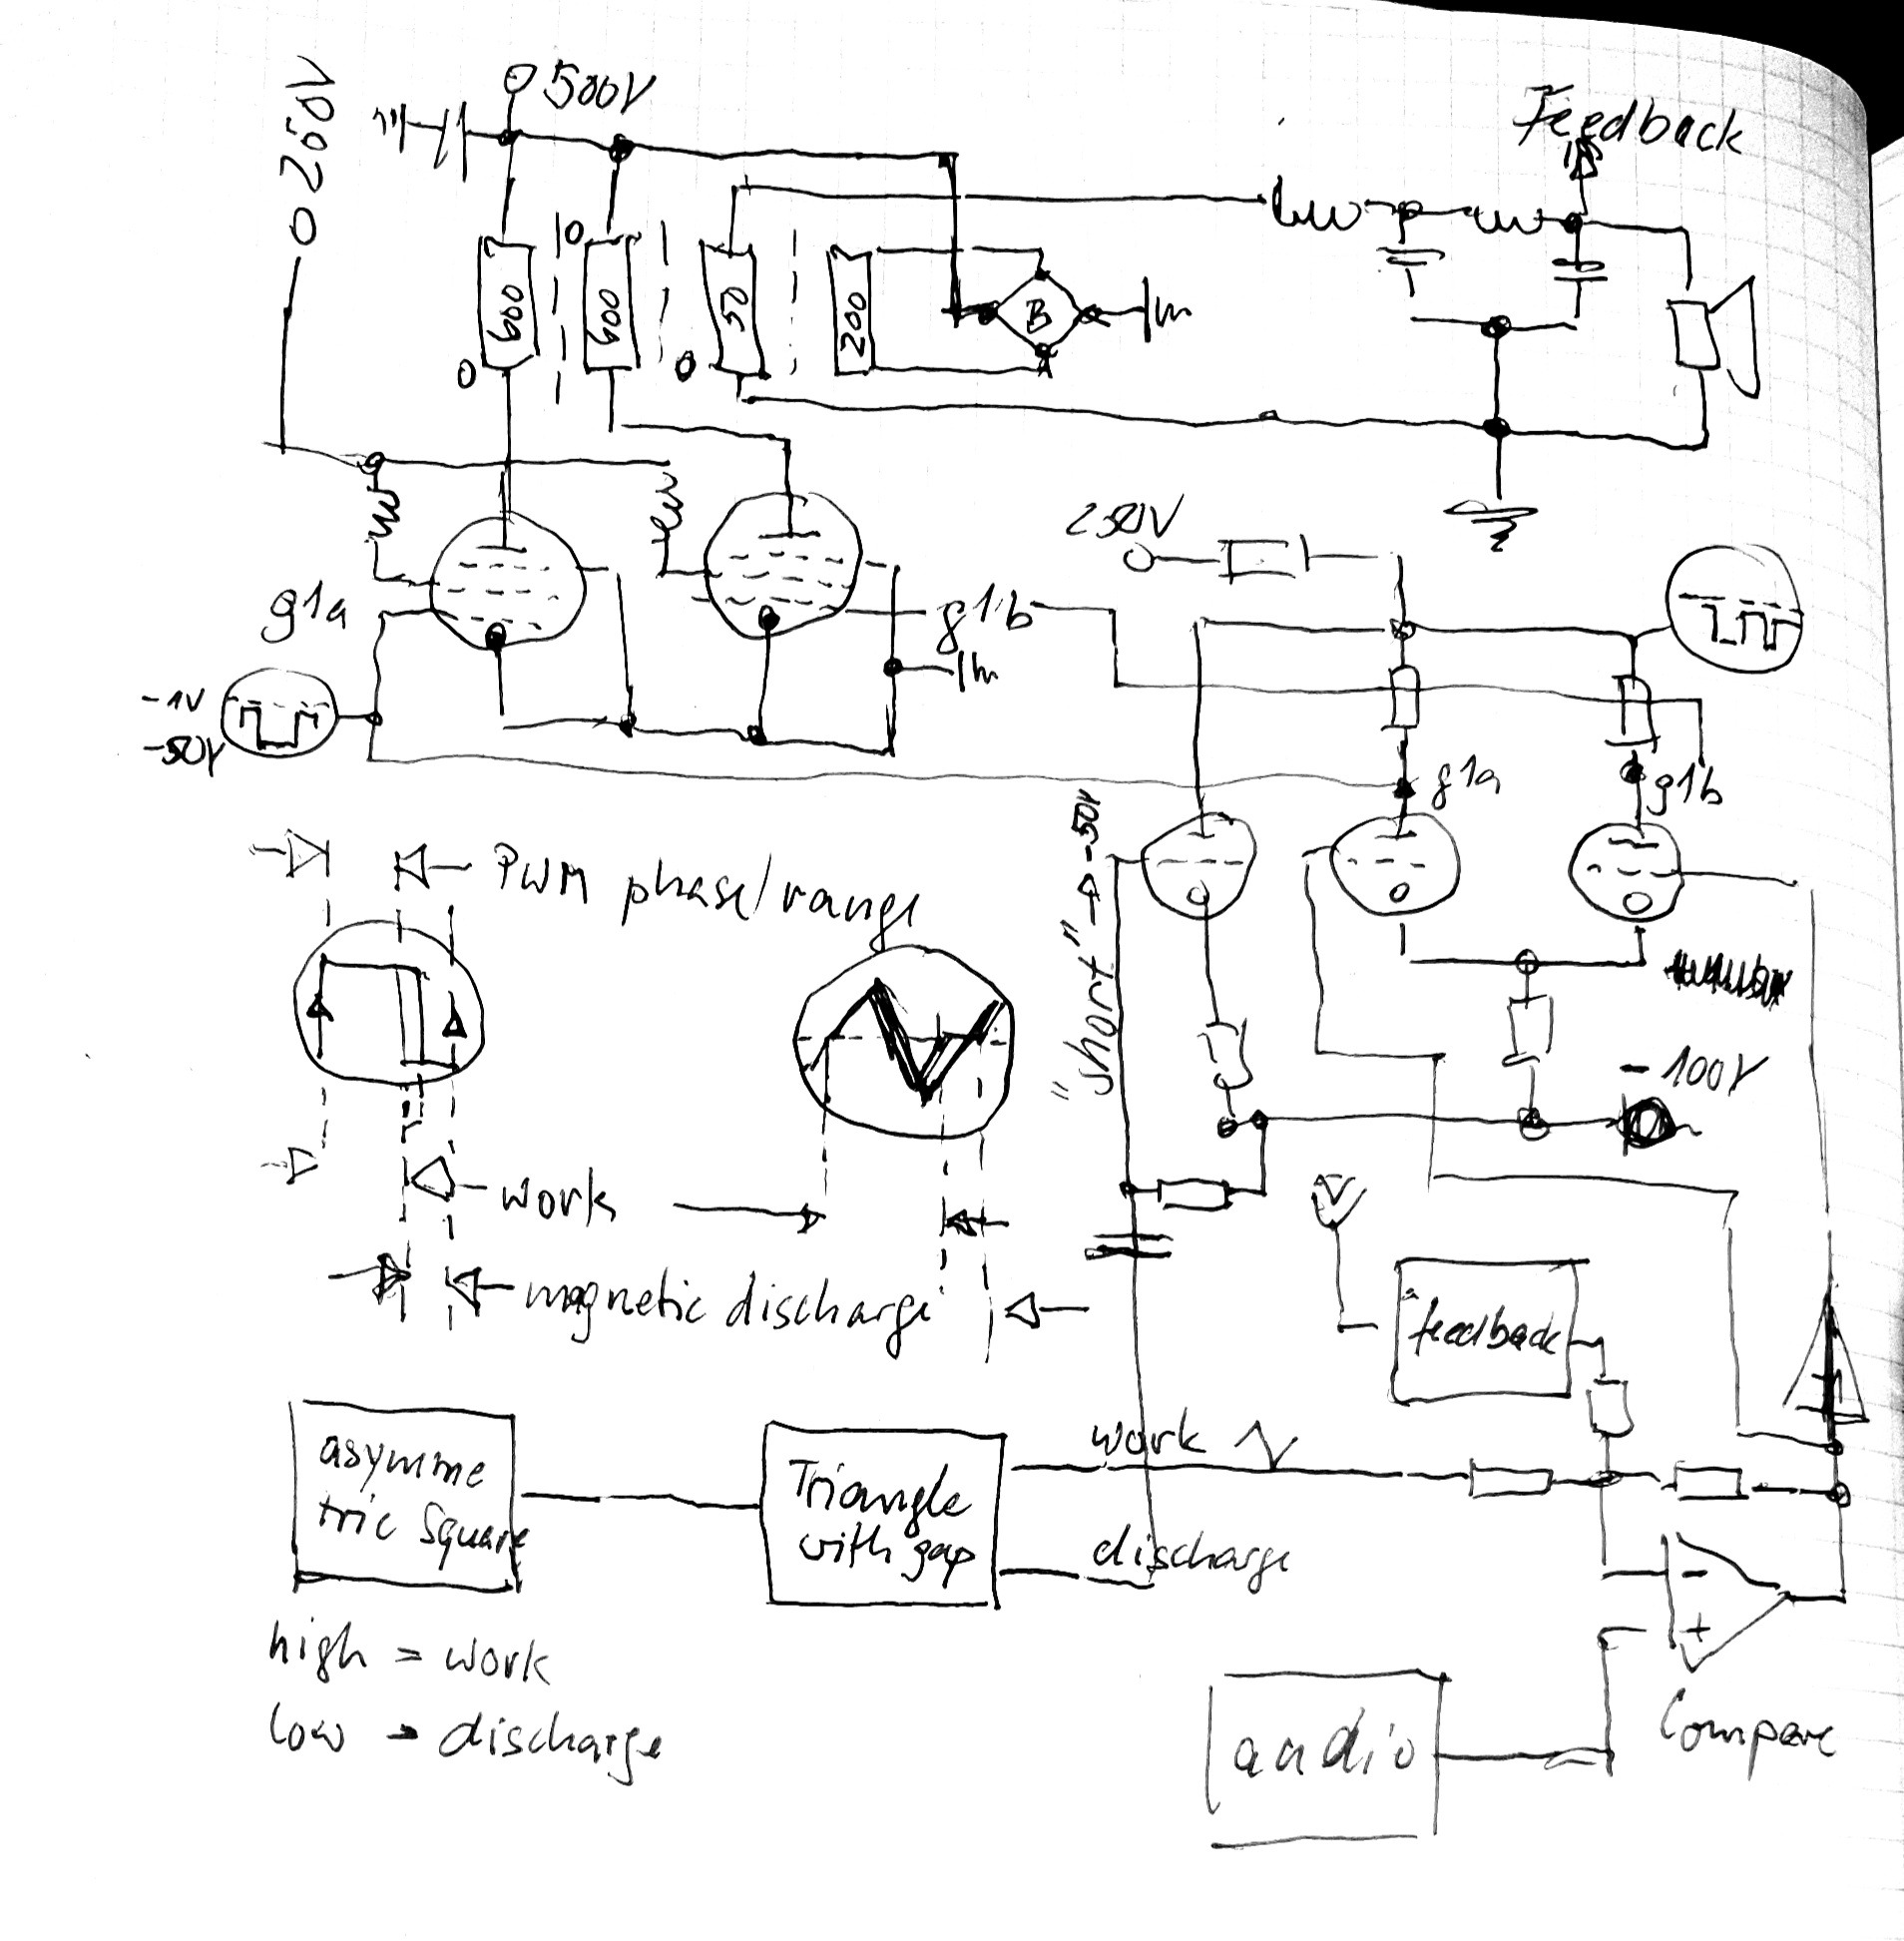 0 250V
500V
Feedback
0
600
600
50
200
B
0
0
250V
g1a
g1b
-1V
-50V
g1a
g1b
-50V
PWM phase/range
"short"
-100V
work
magnetic discharge
feedback
asymme
tric Square
Triangle
with gap
work
discharge
-
+
high = work
low - discharge
audio
Compare